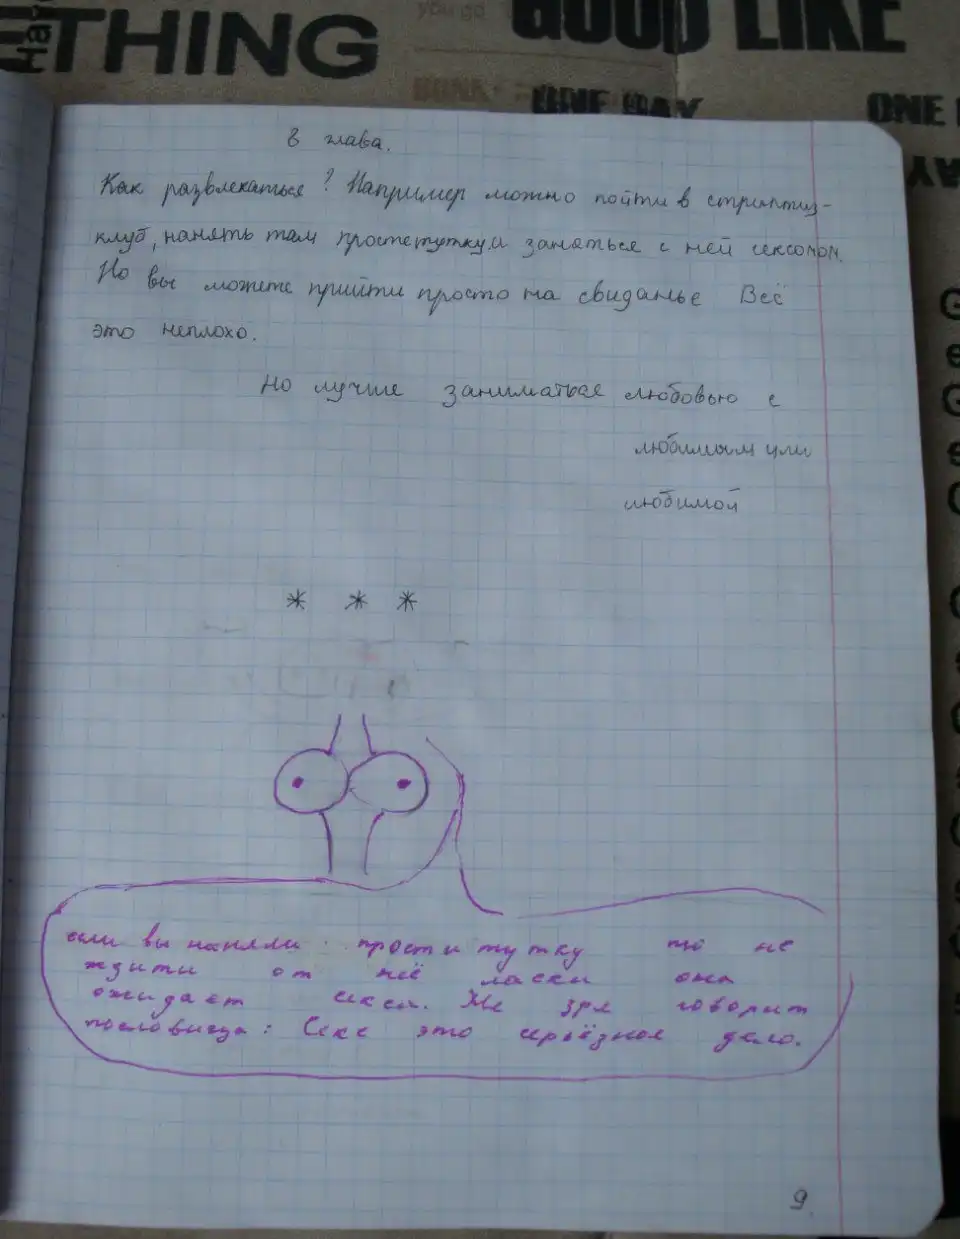 THING
Наг
you go
GOOD LIKE
ONE DAY
ONE
8 глава.
Как развлекаться? Например можно пойти в стриптиз-
клуб, нанять там простетутку и заняться с ней сексомом.
Но вы можете прийти просто на свиданье Всё
это неплохо.
Но лучше заниматься любовью с
любимым или
любимой
* * *
если вы наняли проститутку то не
ждити от неё ласки она
ожидает секса. Не зря говорит
пословица: Секс это серьёзное дело.
9